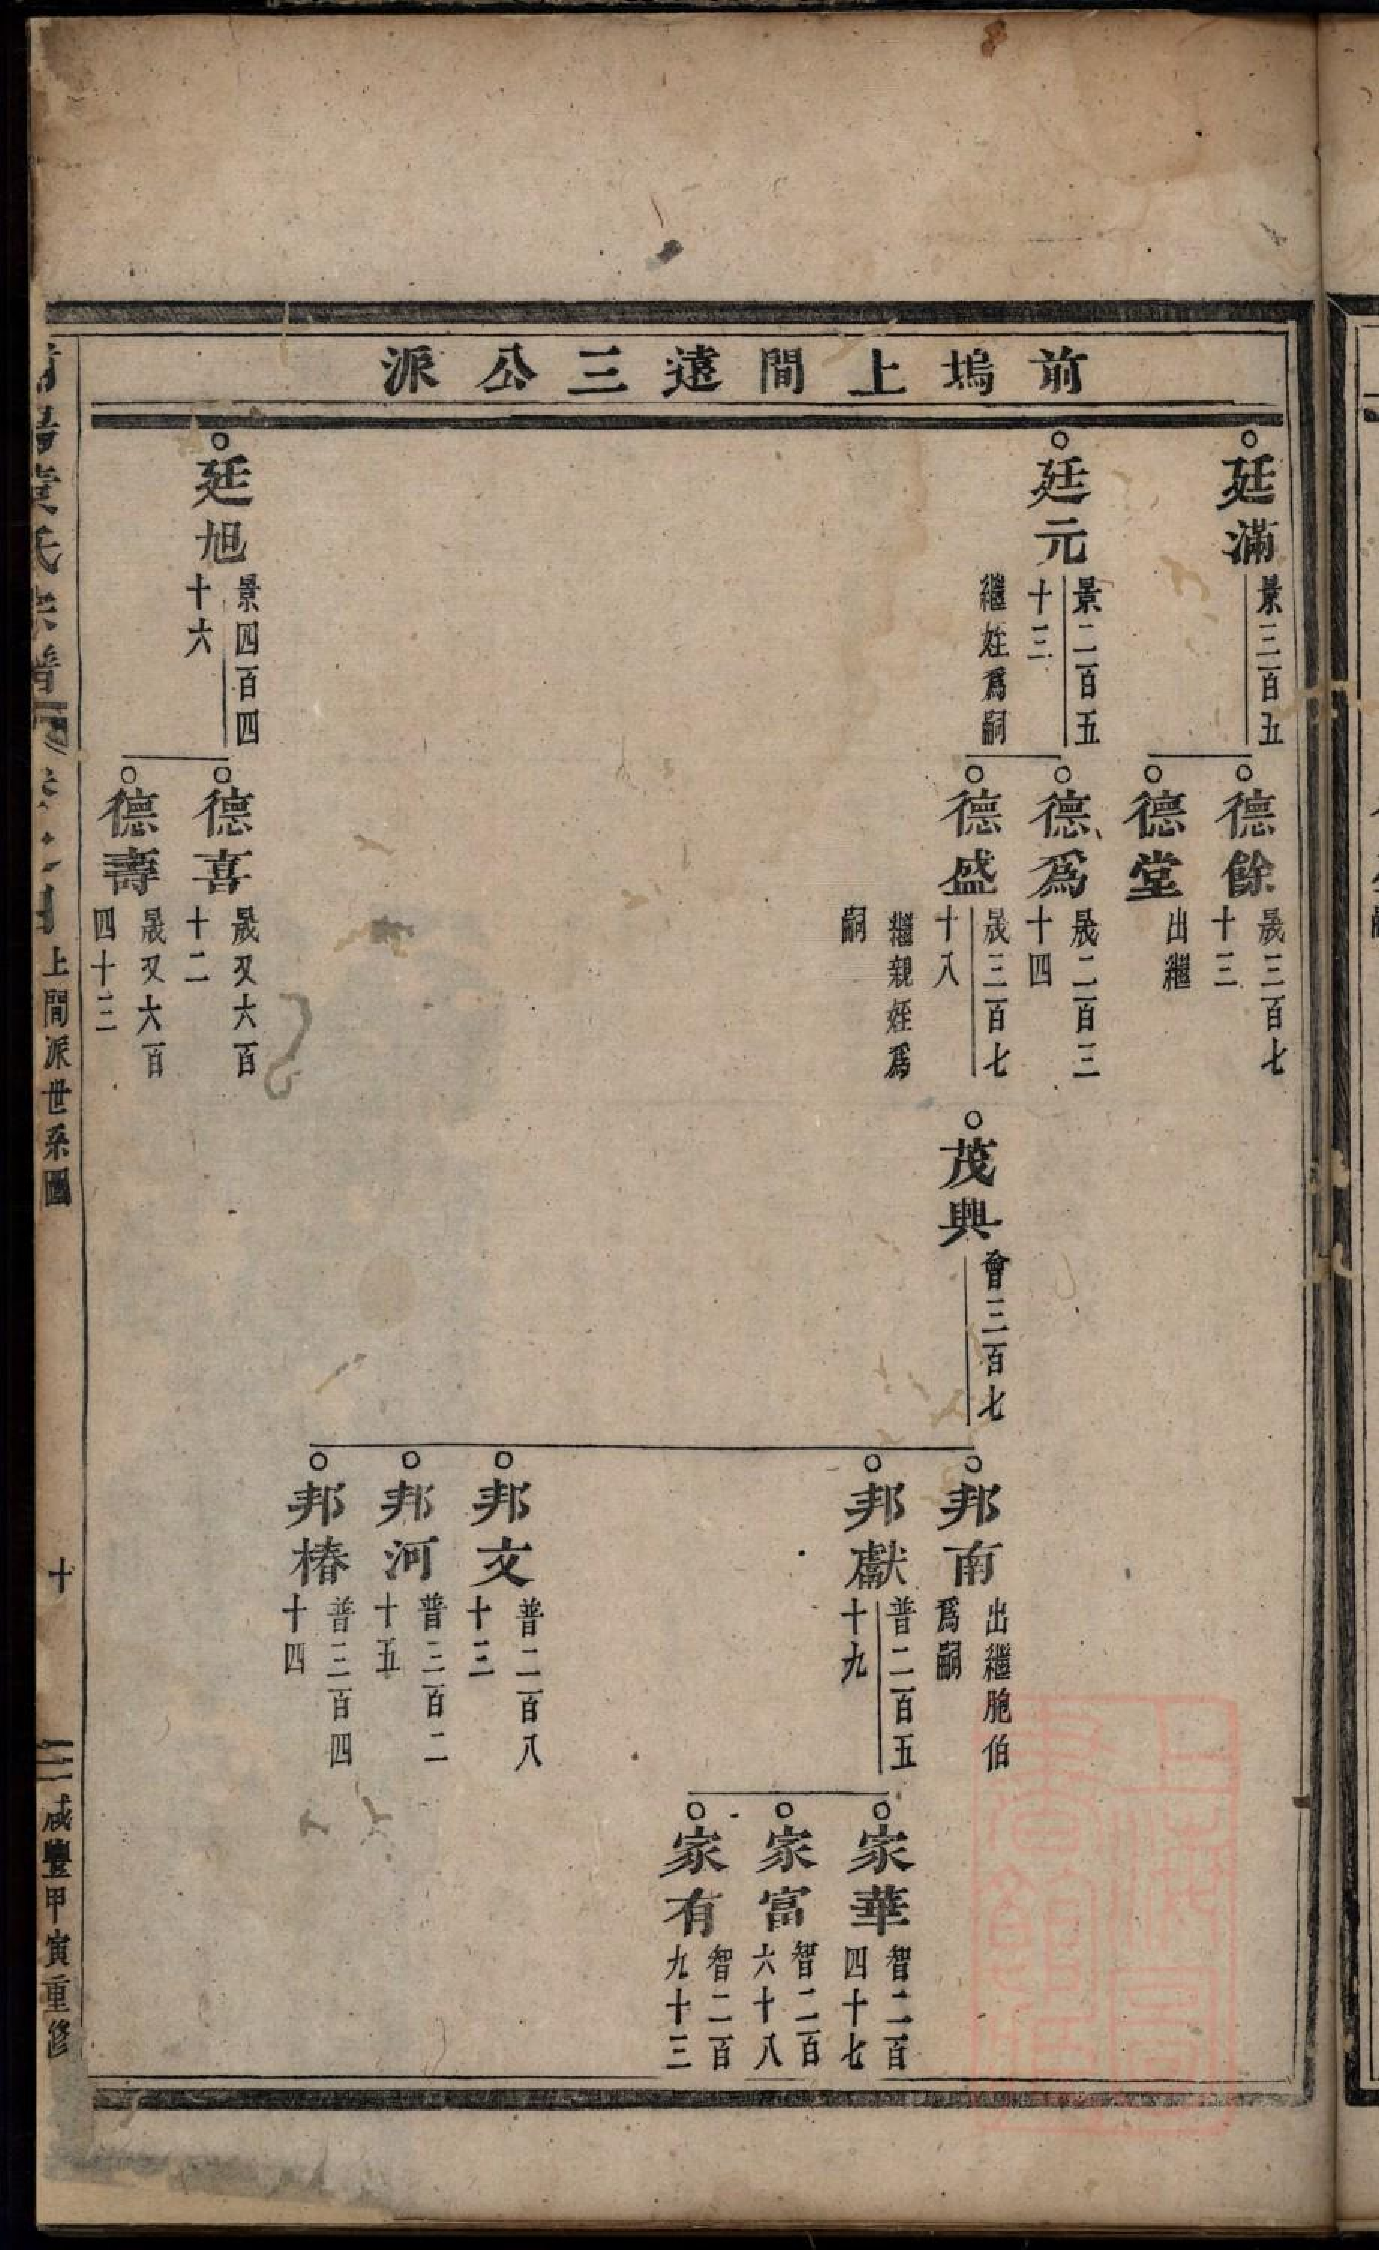 前塢上間遠三公派
廷滿
景三百五
德餘
晟三百七
十三
德堂
出繼
廷元
景二百五
十三
繼姪爲嗣
德爲
晟二百三
十四
德盛
晟三百七
十八
繼親姪爲
嗣
茂興
會三百七
邦南
出繼胞伯
爲嗣
邦獻
普二百五
十九
家華
智二百
四十七
家富
智二百
六十八
家有
智二百
九十三
邦文
普二百八
十三
邦河
普三百二
十五
邦椿
普三百四
十四
廷旭
景四百四
十六
德喜
晟又六百
十二
德壽
晟又六百
四十三
氏宗譜
上間派世系圖
十
咸豐甲寅重修
上海圖書館藏